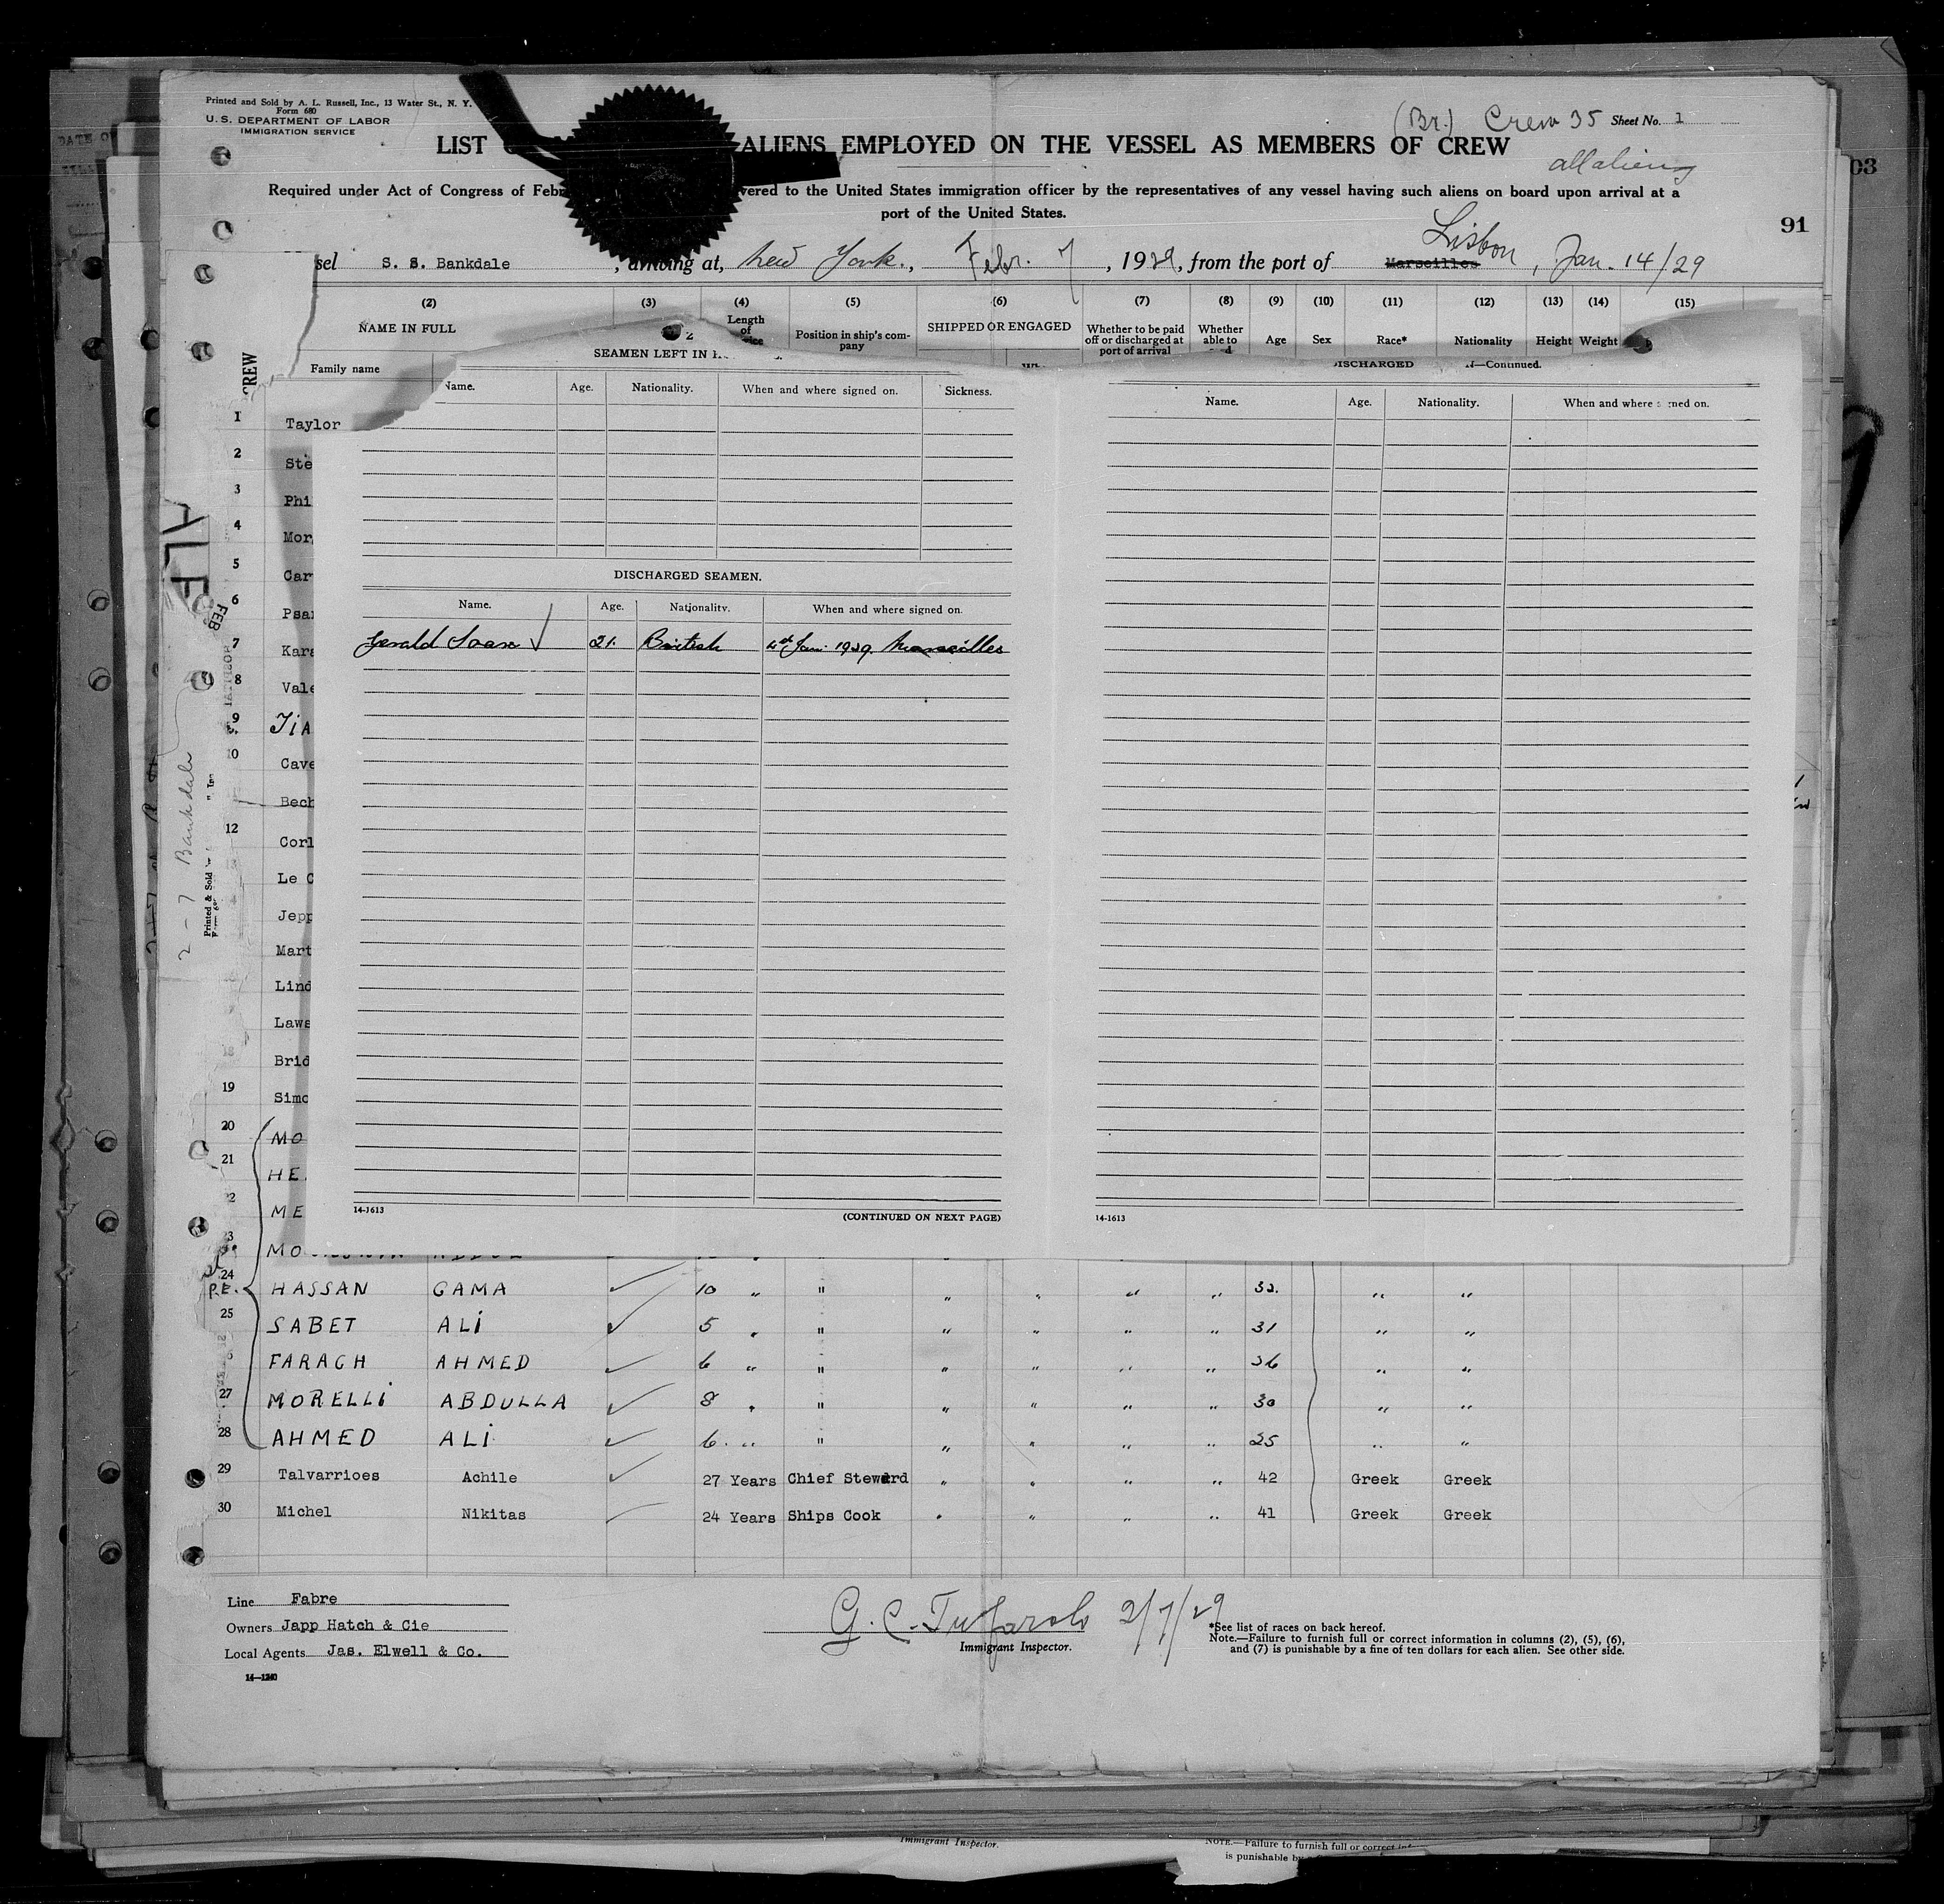 Printed and Sold by A. L. Russell, Inc., 13 Water St., N. Y.
Form 680
U. S. DEPARTMENT OF LABOR
IMMIGRATION SERVICE
(Br.) Crew 35 Sheet No. 1
LIST ALIENS EMPLOYED ON THE VESSEL AS MEMBERS OF CREW
all aliens
Required under Act of Congress of Febr vered to the United States immigration officer by the representatives of any vessel having such aliens on board upon arrival at a
port of the United States.
91
03
sel S. S. Bankdale , arriving at, New York., Febr. 7, 1929, from the port of Marseilles Lisbon, Jan. 14/29
(2) (3) (4) (5) (6) (7) (8) (9) (10) (11) (12) (13) (14) (15)
NAME IN FULL Length of Position in ship's company SHIPPED OR ENGAGED Whether to be paid off or discharged at port of arrival Whether able to Age Sex Race* Nationality Height Weight
Family name
CREW
SEAMEN LEFT IN
Name. Age. Nationality. When and where signed on. Sickness.
DISCHARGED —Continued.
Name. Age. Nationality. When and where signed on.
DISCHARGED SEAMEN.
Name. Age. Nationality. When and where signed on.
Gerald 21. British 4th Jan. 1929. Marseilles
14-1613 (CONTINUED ON NEXT PAGE)
14-1613
1 Taylor
2 Ste
3 Phi
4 Mor
5 Car
6 Psa
7 Kara
8 Vale
9 TiA
10 Cave
Bech
12 Corl
Le C
Jepp
Mart
Lind
Laws
18 Brid
19 Simo
20 MO
21 HE
22 ME
23 MO
24 HASSAN GAMA 10 " " " " " " 32. " "
25 SABET ALI 5 " " " " " " 31 " "
FARAGH AHMED 6 " " " " " " 36 " "
27 MORELLI ABDULLA 8 " " " " " " 30 " "
28 AHMED ALI 6. " " " " " " 25 " "
29 Talvarrioes Achile 27 Years Chief Steward " " " " 42 Greek Greek
30 Michel Nikitas 24 Years Ships Cook " " " " 41 Greek Greek
P.E.
ALF
FEB
2 - 7 Bankdale
Printed & Sold
Line Fabre
Owners Japp Hatch & Cie
Local Agents Jas. Elwell & Co.
14—1240
G. C. Tufarolo 2/7/29
Immigrant Inspector.
*See list of races on back hereof.
Note.—Failure to furnish full or correct information in columns (2), (5), (6),
and (7) is punishable by a fine of ten dollars for each alien. See other side.
Immigrant Inspector.
NOTE.—Failure to furnish full or correct
is punishable by